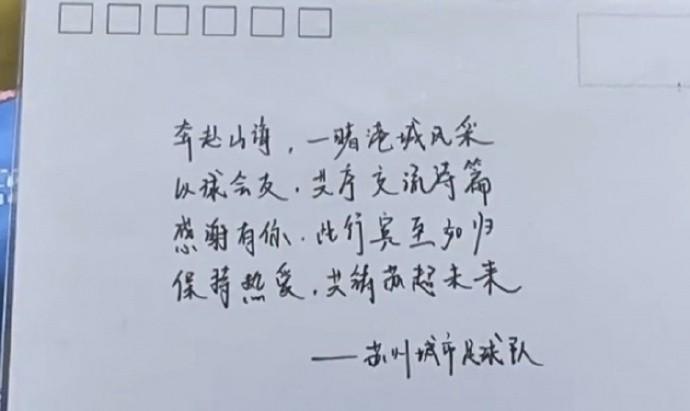 奔赴山海，一睹港城风采
以球会友，共序交流诗篇
感谢有你，此行宾至如归
保持热爱，共铸苏超未来
——苏州城市足球队